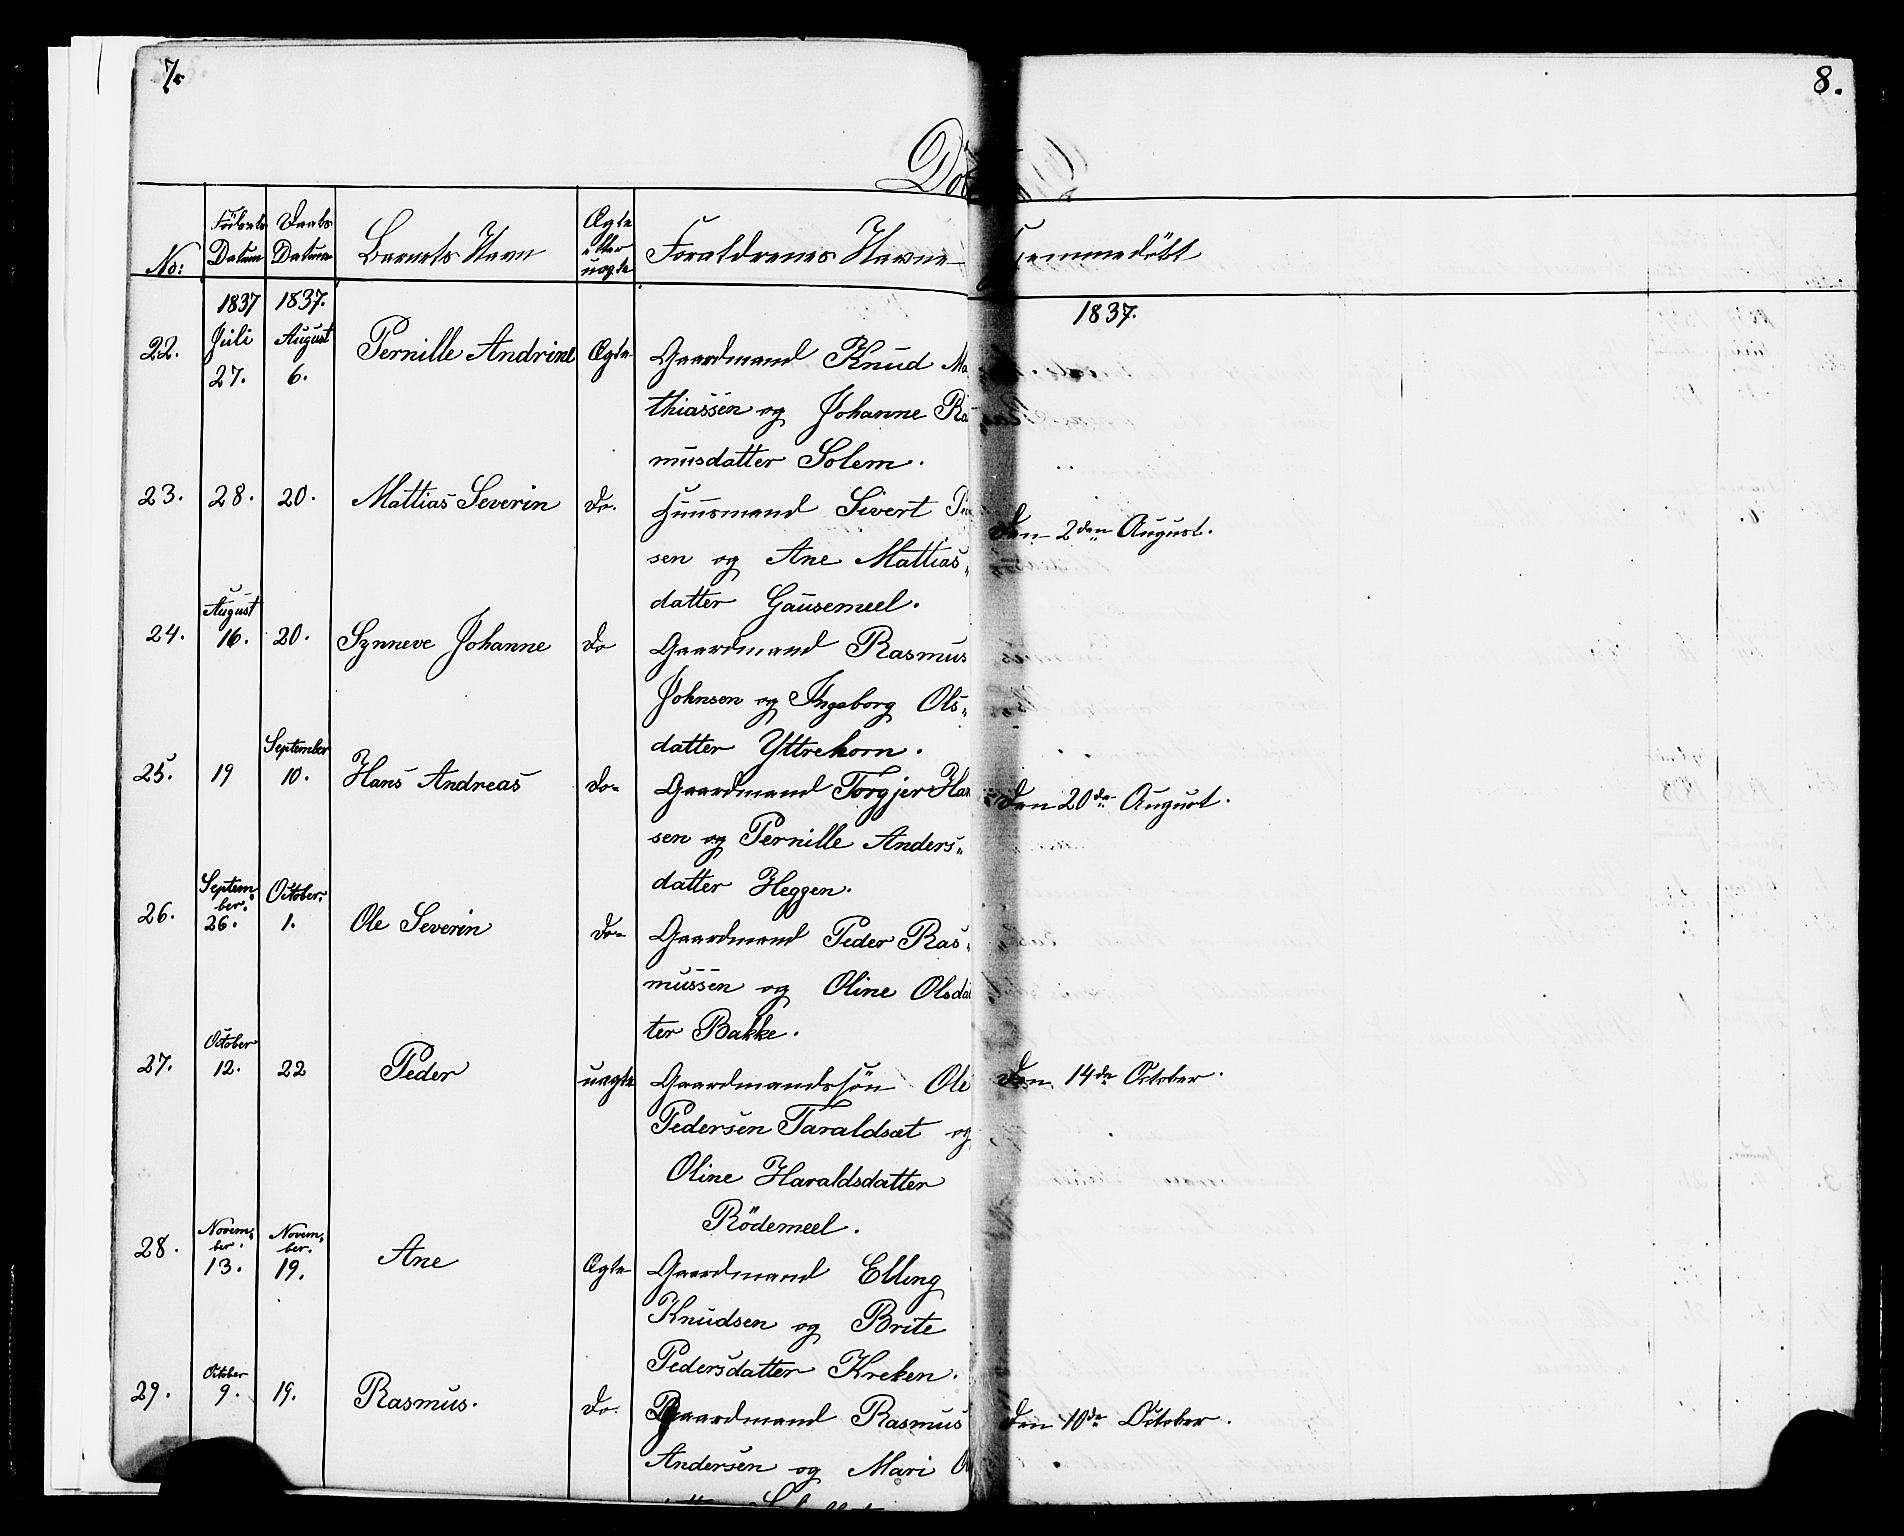 7.
8.
No:
Födsels Datum
Daabs Datum
Barnets Navn
Ægte eller uægte
Foræeldrenes Navne
Hjemmedöbt
1837 1837. 1837.
22. Juli 27. August 6. Pernille Andrine Ægte Gaardmand Knud Ma
thiassen og Johanne Ra
musdatter Solem.
23. 28. 20. Mattias Severin do. Huusmand Sivert
Den 2den August.
sen og Ane Mattias„
datter Gausemeel.
24. August 16. 20. Synneve Johanne do Gaardmand Rasmus
Johnsen og Ingeborg Ols„
datter Yttrehorn.
25. 19 September 10. Hans Andreas do- Gaardmand Torgjer Han
Den 20de August.
sen og Pernille Anders„
datter Heggen.
26. Septem„ber. 26. October. 1. Ole Severin do- Gaardmand Peder Ras„
mussen og Oline Olsdat
ter Bakke.
27. October 12. 22 Peder uægte Gaardmandssön Ole
Den 14de October.
Pedersen Taraldsæt og
Oline Haraldsdatter
Rödemeel.
28. Novem„ber. 13. Novem„ber. 19. Ane Ægte Gaardmand Elling
Knudsen og Brite
Pedersdatter Kreken.
29. October 9. 19. Rasmus. do. Gaardmand Rasmus
Den 10de October.
Andersen og Mari